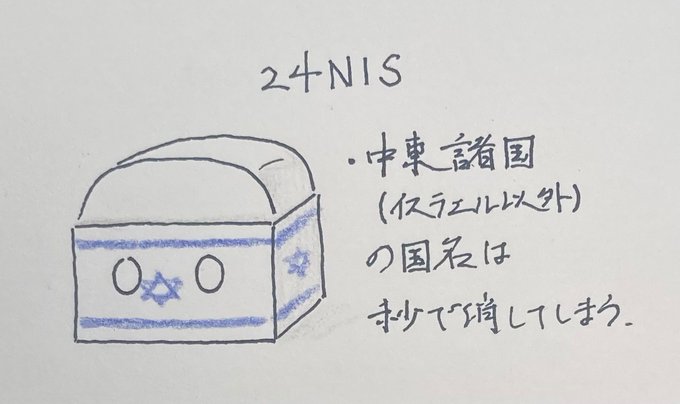 24NIS
・中東諸国
(イスラエル以外)
の国名は
秒で消してしまう.